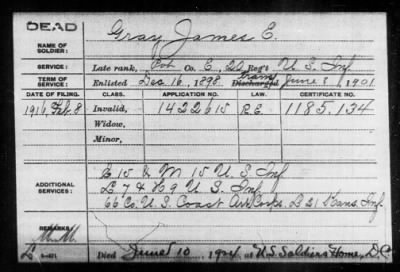 DEAD
NAME OF SOLDIER: Gray, James E.
SERVICE: Late rank, Pvt Co. E, 20 Reg't U. S. Inf
TERM OF SERVICE: Enlisted Dec 16, 1898 Discharged Trans June 8, 1901
DATE OF FILING. CLASS. APPLICATION NO. LAW. CERTIFICATE NO.
1916, Feb. 8 Invalid, 1422615 R.E. 1185.134
Widow,
Minor,
E 15 & M 15 U. S. Inf
ADDITIONAL SERVICES: L 7 & K 9 U. S. Inf
66 Co. U. S. Coast Art Corps. L 21 Kans. Inf.
REMARKS:
Died June 10, 1924 at U.S. Soldiers Home, D.C.